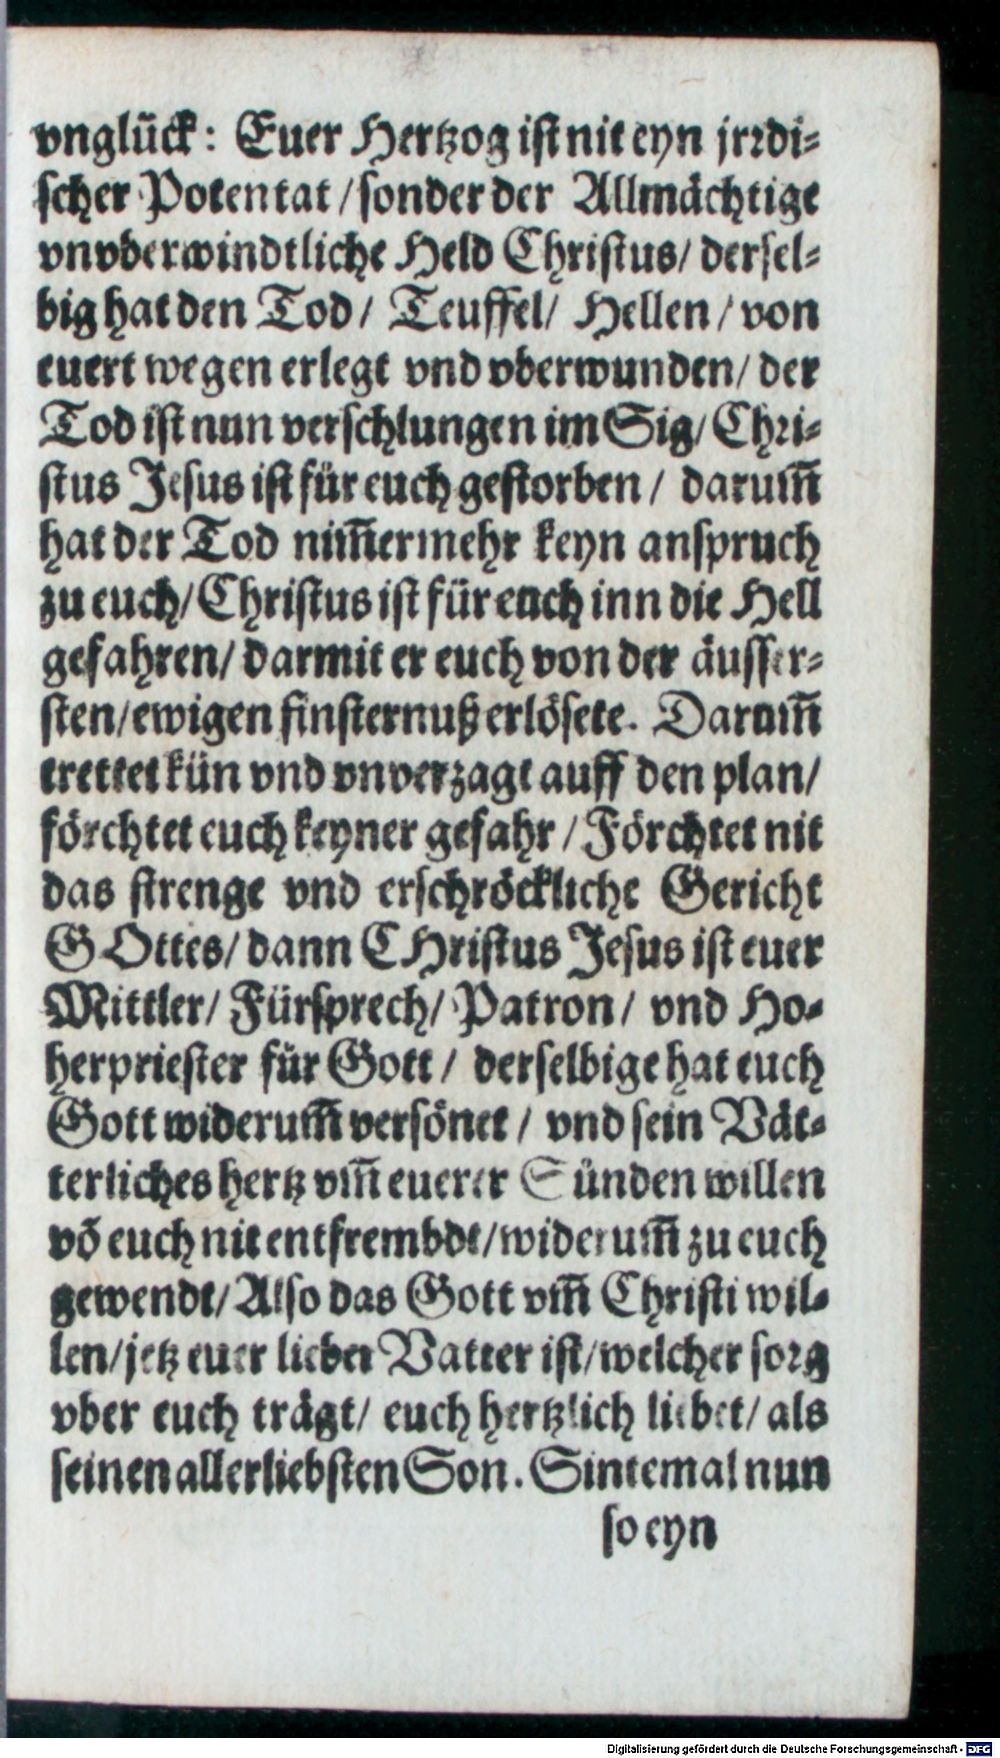 vnglück: Euer Hertzog ist nit eyn jrrdi-
scher Potentat / sonder der Allmächtige
vnvberwindtliche Held Christus / dersel-
big hat den Tod / Teuffel / Hellen / von
euert wegen erlegt vnd vberwunden / der
Tod ist nun verschlungen im Sig / Chri-
stus Jesus ist für euch gestorben / darum̃
hat der Tod nim̃ermehr keyn anspruch
zu euch / Christus ist für euch inn die Hell
gefahren / darmit er euch von der äusser-
sten / ewigen finsternuß erlösete. Darum̃
trettet kün vnd vnverzagt auff den plan /
förchtet euch keyner gefahr / Förchtet nit
das strenge vnd erschröckliche Gericht
GOttes / dann CHristus Jesus ist euer
Mittler / Fürsprech / Patron / vnd Ho-
herpriester für Gott / derselbige hat euch
Gott widerum̃ versönet / vnd sein Vät-
terliches hertz vm̃ euerer Sünden willen
võ euch nit entfrembdt / widerum̃ zu euch
gewendt / Also das Gott vm̃ Christi wil-
len / jetz euer lieber Vatter ist / welcher sorg
vber euch trägt / euch hertzlich liebet / als
seinen allerliebsten Son. Sintemal nun
so eyn
Digitalisierung gefördert durch die Deutsche Forschungsgemeinschaft - DFG